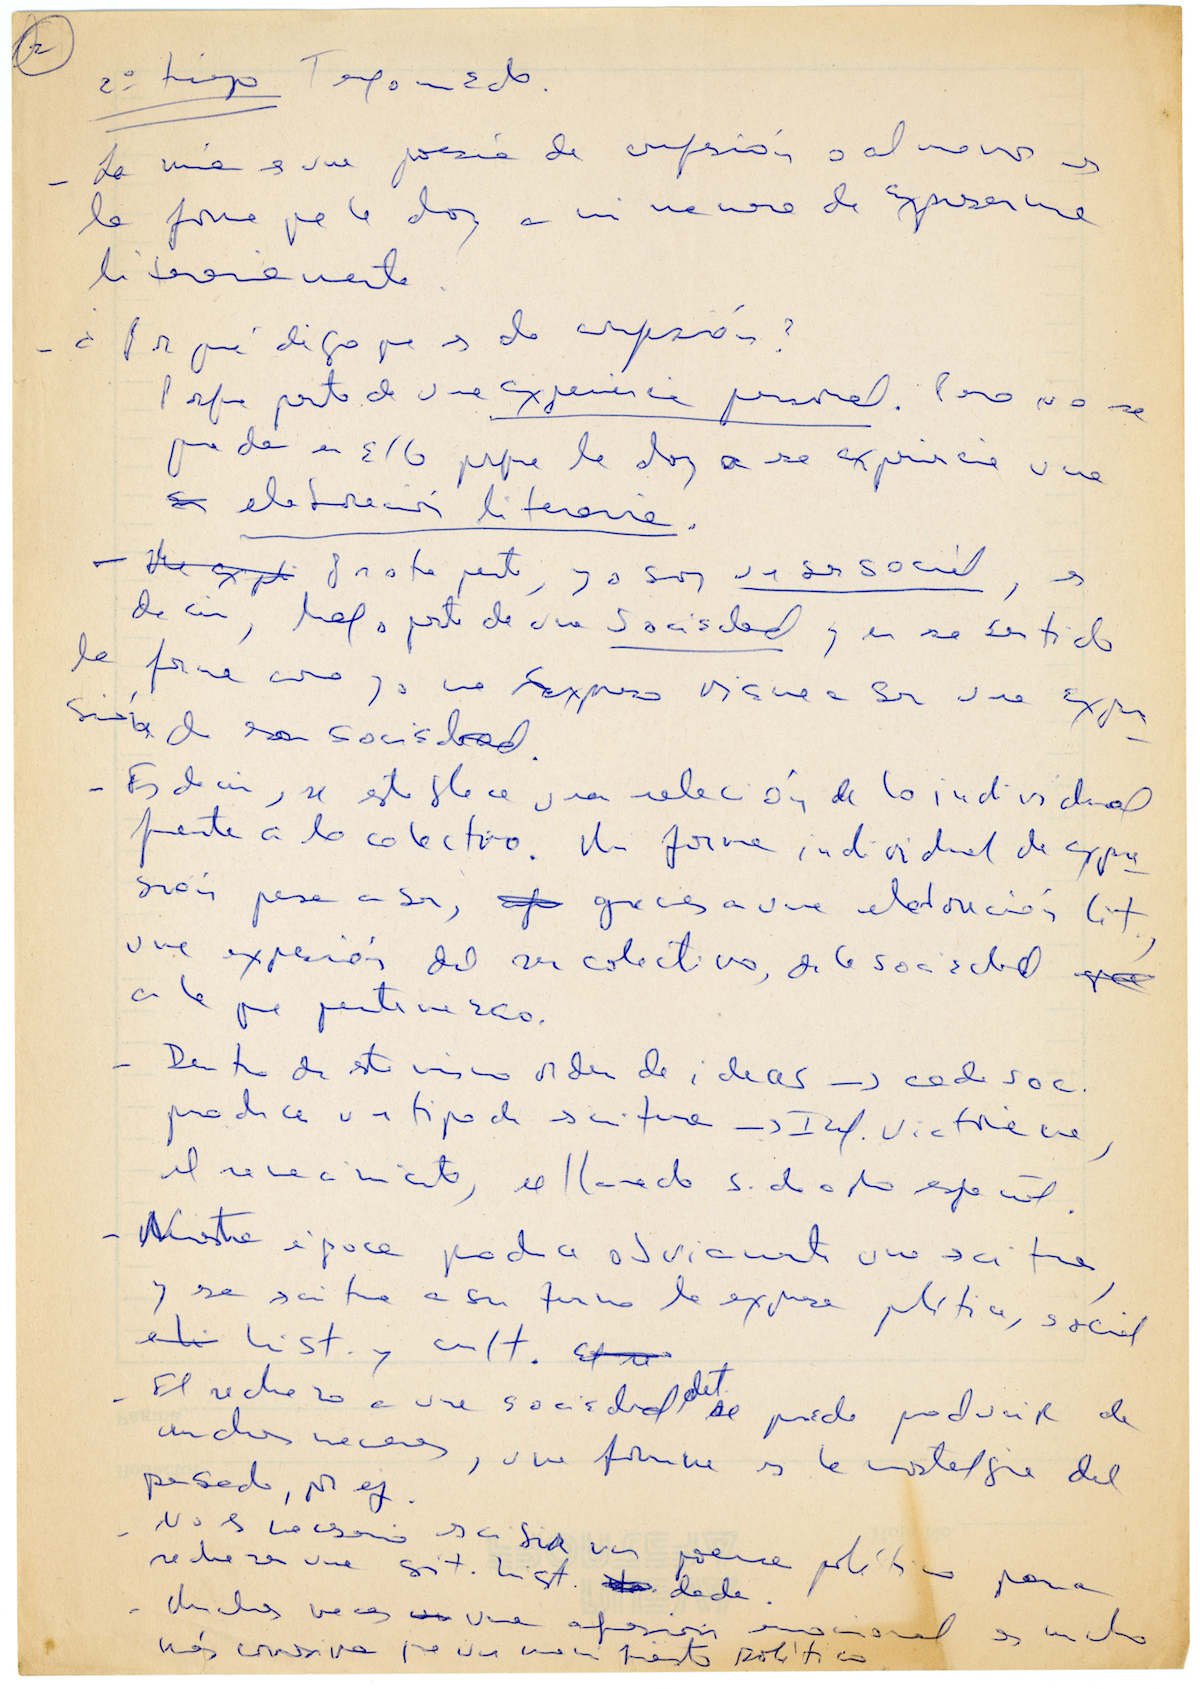 2
2º tiempo
- La mía es una poesía de confesión o al menos es
la forma que le doy a mi manera de expresarme
literariamente.
- ¿Por qué digo que es de confesión?
Porque parto de una experiencia personal. Pero no se
queda en ello porque le doy a esa experiencia una
elaboración literaria.
- Por otra parte, yo soy un ser social, es
decir, hago parte de una sociedad y en ese sentido
la forma como yo me expreso viene a ser una expre
sión de esa sociedad.
- Es decir, se establece una relación de lo individual
frente a lo colectivo. Mi forma individual de expre
sión pasa a ser, gracias a una elaboración lit.,
una expresión del ser colectivo, de la sociedad
a la que pertenezco.
- Dentro de este mismo orden de ideas → cada soc.
produce un tipo de escritura → Ingl. victoriana,
el renacimiento, el llamado s. de oro español.
- Nuestra época produce obviamente una escritura,
y esa escritura a su turno la expresa política, social
hist. y cult.
- El rechazo a una sociedad det. se puede producir de
muchas maneras, una forma es la nostalgia del
pasado, por ej.
- No es necesario escribir un poema político para
rechazar una sit. hist. dada.
- Muchas veces una efusión emocional es mucho
más corrosiva que un manifiesto político